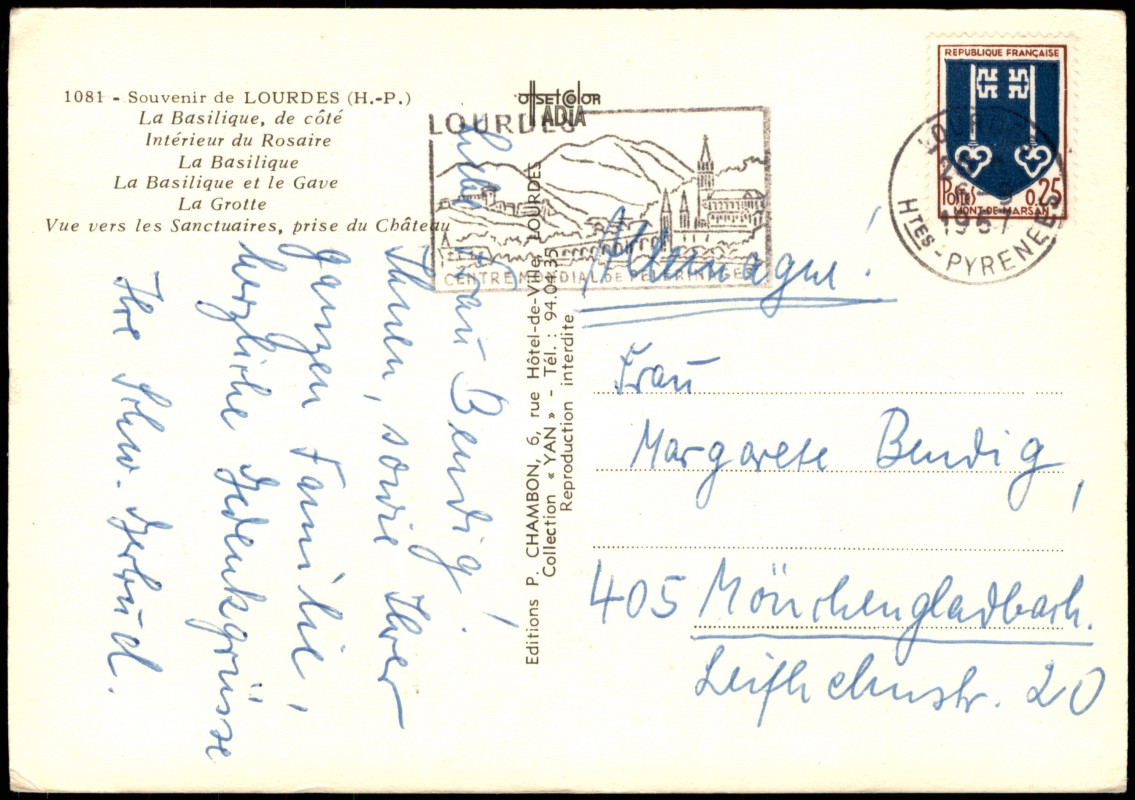 1081 - Souvenir de LOURDES (H.-P.)
La Basilique, de côté
Intérieur du Rosaire
La Basilique
La Basilique et le Gave
La Grotte
Vue vers les Sanctuaires, prise du Château
offsetcolor
ADIA
LOURDES
CENTRE MONDIAL DE PELERINAGES
REPUBLIQUE FRANÇAISE
Postes 0,25
MONT-DE-MARSAN
LOURDES
1967
Htes-PYRENEES
Liebe Frau Bendig!
Ihnen, sowie Ihrer
ganzen Familie,
herzliche Gedenkgrüsse
Ihre Schw. Gertrud.
Editions P. CHAMBON, 6, rue Hôtel-de-Ville, LOURDES
Collection « YAN » - Tél. : 94.04.35
Reproduction interdite
Allemagne!
Frau
Margarete Bendig,
405 Mönchengladbach.
20